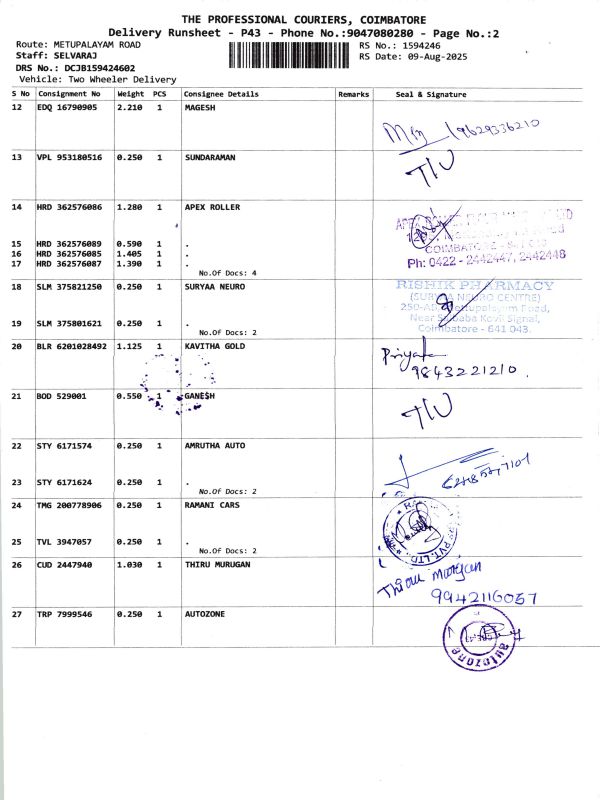 THE PROFESSIONAL COURIERS, COIMBATORE
Delivery Runsheet - P43 - Phone No.:9047080280 - Page No.:2
Route: METUPALAYAM ROAD
RS No.: 1594246
Staff: SELVARAJ
RS Date: 09-Aug-2025
DRS No.: DCJB159424602
Vehicle: Two Wheeler Delivery
S No Consignment No Weight PCS Consignee Details Remarks Seal & Signature
12 EDQ 16790905 2.210 1 MAGESH
9629336210
13 VPL 953180516 0.250 1 SUNDARAMAN
T/U
14 HRD 362576086 1.280 1 APEX ROLLER
15 HRD 362576089 0.590 1 .
16 HRD 362576085 1.405 1 .
COIMBATORE
17 HRD 362576087 1.390 1 .
Ph: 0422 - 2442447, 2442448
No.Of Docs: 4
18 SLM 375821250 0.250 1 SURYAA NEURO
RISHIK PHARMACY
(SURYA NEURO CENTRE)
250-A Mettupalayam Road,
Near Saibaba Kovil Signal,
Coimbatore - 641 043.
19 SLM 375801621 0.250 1 .
No.Of Docs: 2
20 BLR 6201028492 1.125 1 KAVITHA GOLD
Priyanka
9843221210.
21 BOD 529001 0.550 1 GANESH
T/U
22 STY 6171574 0.250 1 AMRUTHA AUTO
23 STY 6171624 0.250 1 .
No.Of Docs: 2
24 TMG 200778906 0.250 1 RAMANI CARS
PVT.LTD.
25 TVL 3947057 0.250 1 .
No.Of Docs: 2
26 CUD 2447940 1.030 1 THIRU MURUGAN
Thiru Murugan
9942116057
27 TRP 7999546 0.250 1 AUTOZONE
autozone